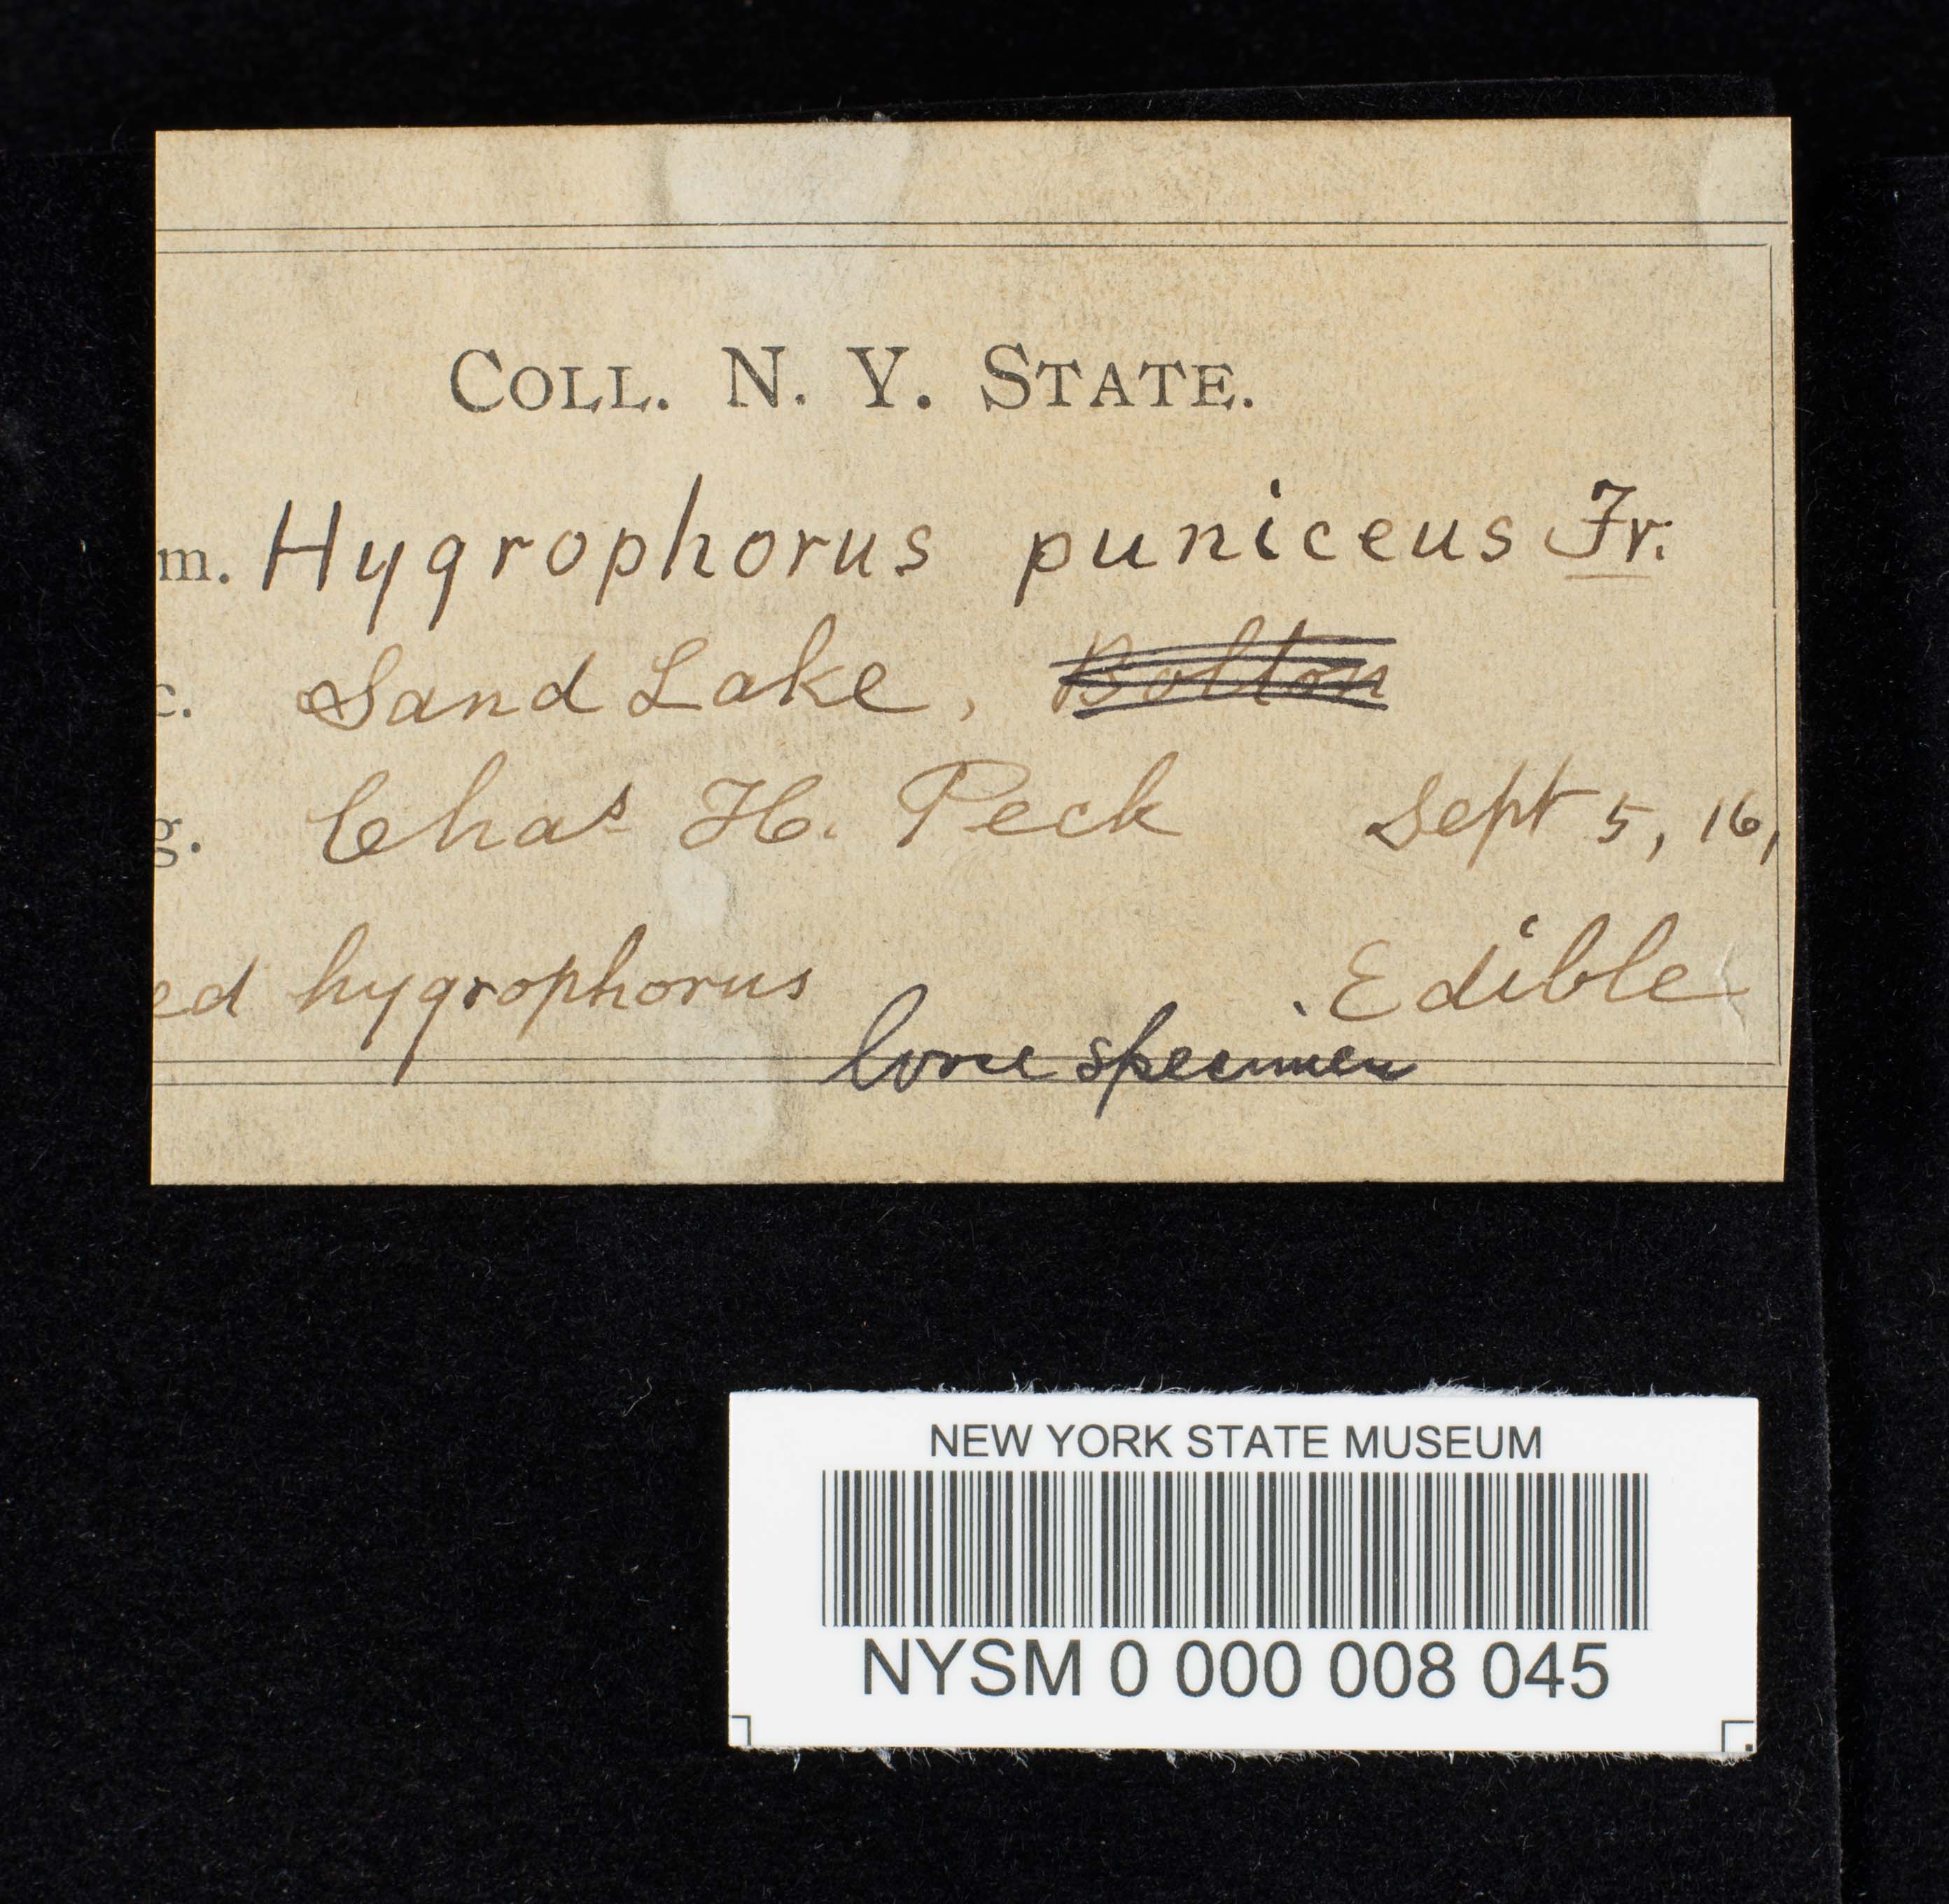 COLL. N. Y. STATE.
m. Hygrophorus puniceus Fr.
c. Sand Lake, Bolton
g. Chas H. Peck Sept 5, 16,
ed hygrophorus Edible
loose specimen
NEW YORK STATE MUSEUM
NYSM 0 000 008 045